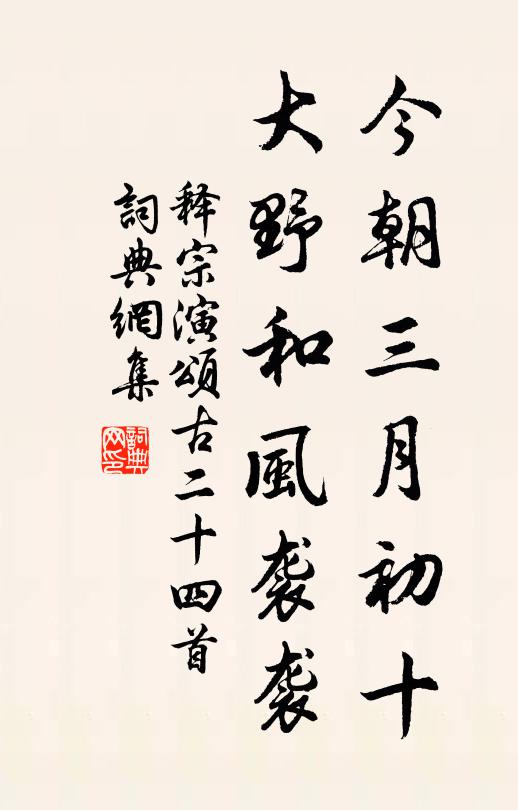 今朝三月初十
大野和風袭袭
释宗演頌古二十四首
詞典網集
詞典网印